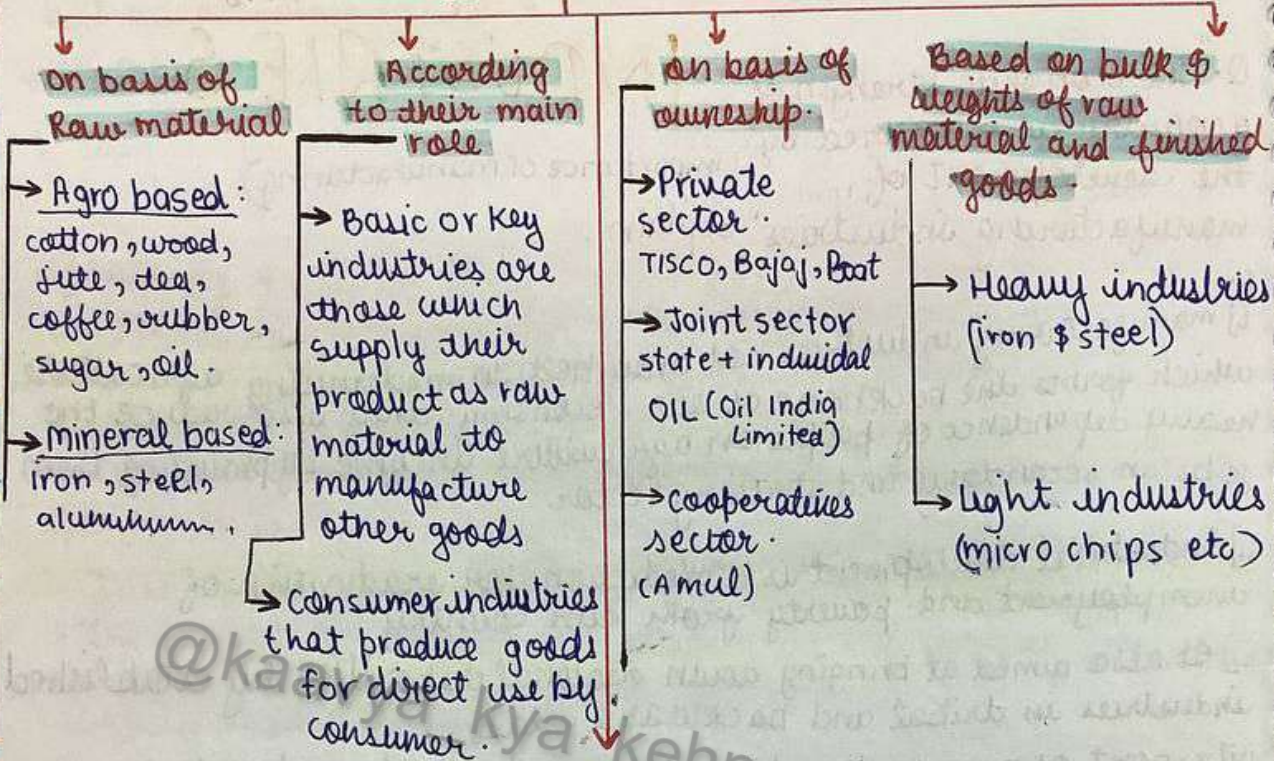 On basis of
Raw material
→ Agro based:
cotton, wood,
jute, tea,
coffee, rubber,
sugar, oil.
→ mineral based:
iron, steel,
According
to their main
role
→ Basic or Key
industries are
those which
supply their
product as raw
material to
manufacture
other goods
→ consumer industries
that produce goods
for direct use by
consumer.
on basis of
owneship.
→ Private
sector.
TISCO, Bajaj,
→ Joint sector
state + induidal
OIL (Oil India
Limited)
→ cooperatives
sector.
(Amul)
Based on bulk $
weights of raw
material and finished
goods.
→ Heavy industries
(iron $ steel)
→ Light industries
(micro chips etc)
@kaavya_kya_